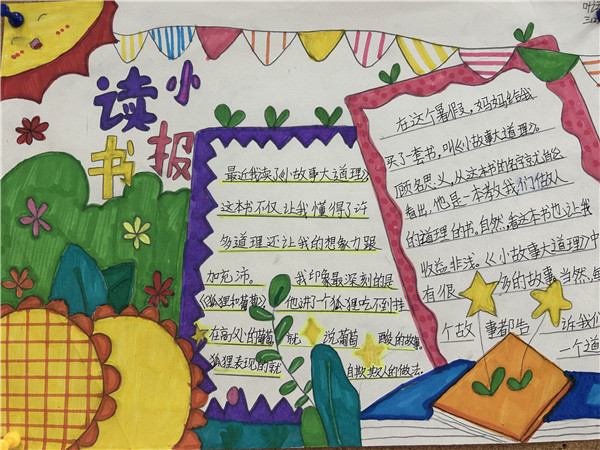 读书
小报
最近我读了《小故事大道理》
这本书不仅让我懂得了许
多道理还让我的想象力跟
加充沛。 我印象最深刻的是
《狐狸和葡萄》他讲了一个狐狸吃不到挂
在高处的葡萄 就 说葡萄 酸的故事。
狐狸表现的就 自欺欺人的做法.
在这个暑假,妈妈给我
买了套书,叫《小故事大道理》。
顾名思义,从这本书的名字就
看出,他是一本教我们做人
的道理的书,自然,看这本书也让我
收益非浅。《小故事大道理》中
有很 多的故事,当然,每
个故 事都告 诉我们
一个道